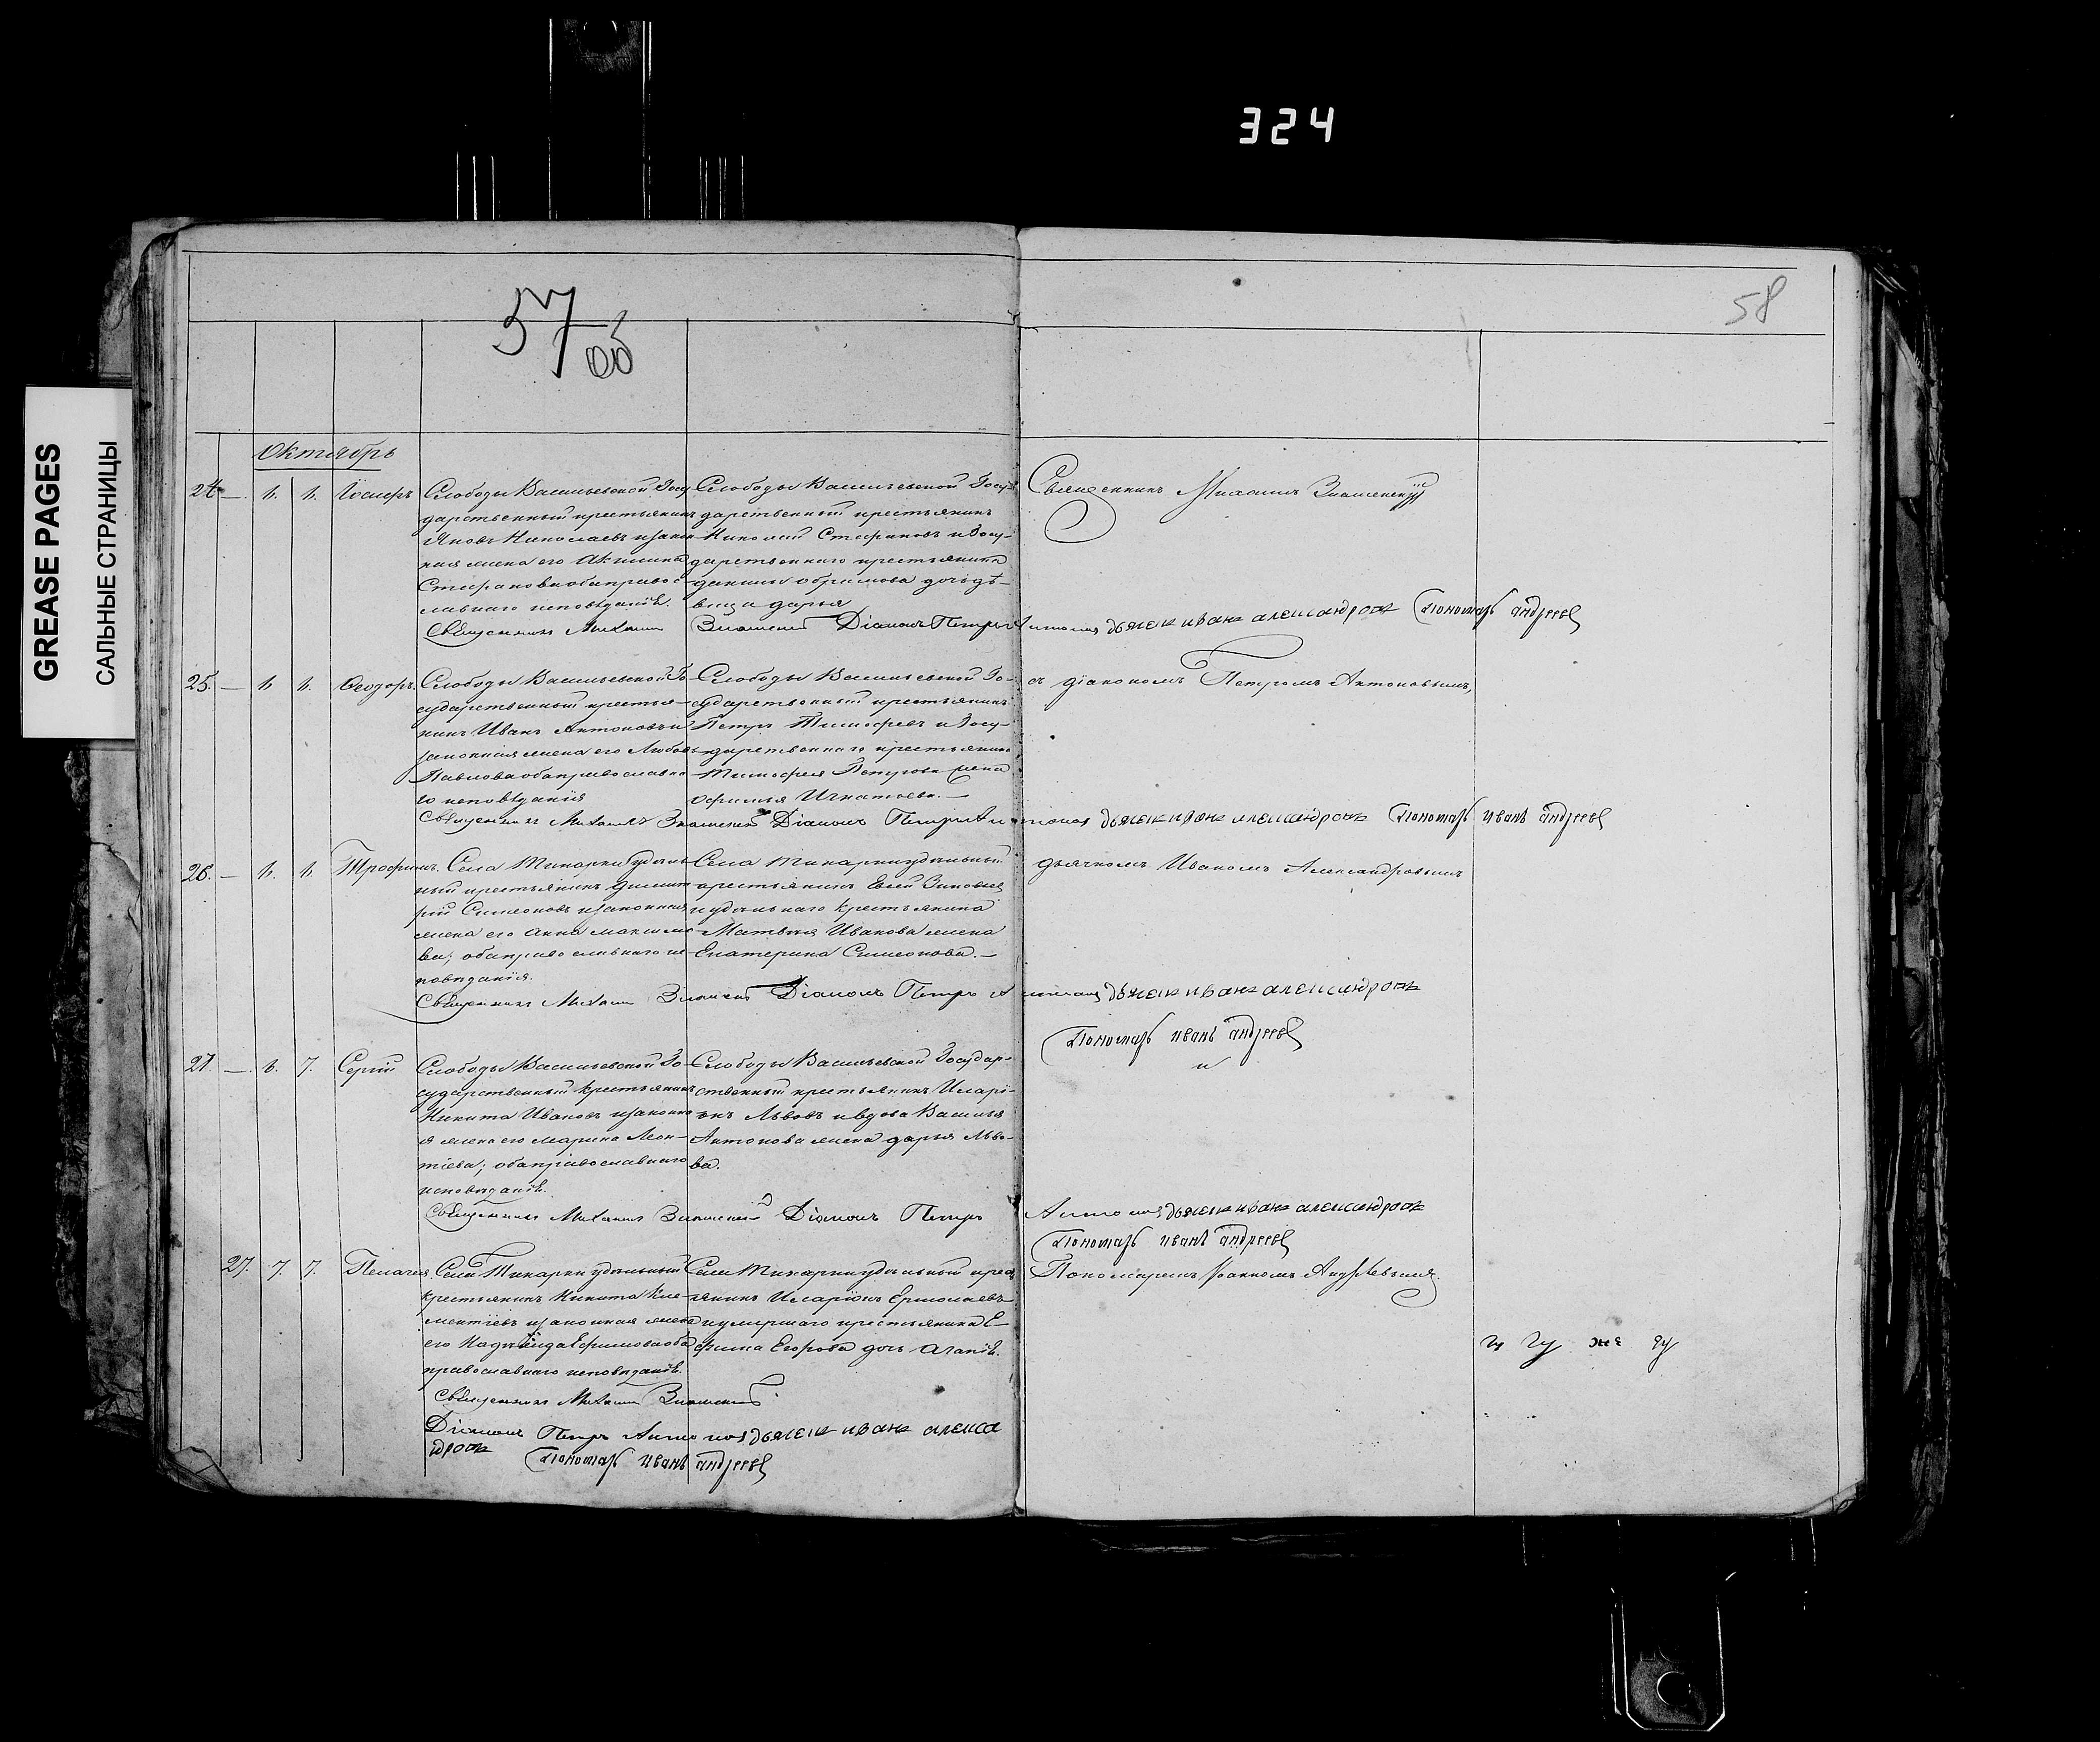 324
GREASE PAGES
САЛЬНЫЕ СТРАНИЦЫ
57 об
58
Октябрь
24 — 6. 6. Іосифъ
Слободы Васильевской Госу
дарственный крестьянинъ
Яковъ Николаевъ и закон
ная жена его Акилина
Стефановва оба правос
лавнаго исповѣданія.
Слободы Васильевской Госу
дарственный крестьянинъ
Николай Стефановъ и Госу-
дарственнаго крестьянина
дочь дѣ-
вица дарья
Священникъ Михаилъ Знаменскій
Священникъ Михаилъ Знаменскій Діаконъ Петръ Антоновъ дьячекъ иванъ александровъ Пономарь андреевъ
25. — 6 6. Ѳеодоръ.
Слободы Васильевской Го
сударственный крестья-
нинъ Иванъ Антоновъ и
законная жена его Любовь
Павлова оба православна
го исповѣданія
Слободы Васильевской Го-
сударственный крестьянинъ
Петръ Тимофеевъ и Госу-
дарственнаго крестьянина
Тимофея Петрова жена
Игнатьева. —
съ діакономъ Петромъ Антоновымъ,
Священникъ Михаилъ Знаменскій Діаконъ Петръ Антоновъ дьячекъ иванъ александровъ Пономарь иванъ андреевъ
26. — 6. 6. Трофимъ.
Села Тинарки удѣль
ный крестьянинъ Димит
рій Симеоновъ и законная
жена его анна максимо
ва; оба православнаго ис
повѣданія.
Села Тинарки удѣльный
крестьянинъ Евсей Зиновьев
и удѣльнаго крестьянина
Матвѣя Иванова жена
Екатерина Симеонова. —
дьячкомъ Иваномъ Александровымъ
Священникъ Михаилъ Знаменскій Діаконъ Петръ Антоновъ дьячекъ иванъ александровъ
Пономарь иванъ андреевъ
и
27. — 6. 7. Сергій
Слободы Васильевской Го
сударственный крестьянинъ
Никита Ивановъ и законна
я жена его марина Леон-
тіева; оба православнаго
исповѣданія.
Слободы Васильевской Государ-
ственный крестьянинъ Иларі-
онъ Львовъ и вдова Василья
Антонова жена дарья Льво-
ва.
Священникъ Михаилъ Знаменскій Діаконъ Петръ Антоновъ дьячекъ иванъ александровъ
Пономарь иванъ андреевъ
27. 7. 7. Пелагея.
Села Тинарки удѣльный
крестьянинъ Никита Кле-
ментіевъ и законная жена
его Надежда Ефимова оба
православнаго исповѣданія.
Села Тинарки удѣльный крес
янинъ Иларіонъ Ермолаевъ
и умершаго крестьянина Е-
фима Егорова дочь Агапія.
Пономаремъ Іоанномъ Андреевымъ.
Священникъ Михаилъ Знаменскій
Діаконъ Петръ Антоновъ дьячекъ иванъ алекса
ндровъ Пономарь иванъ андреевъ